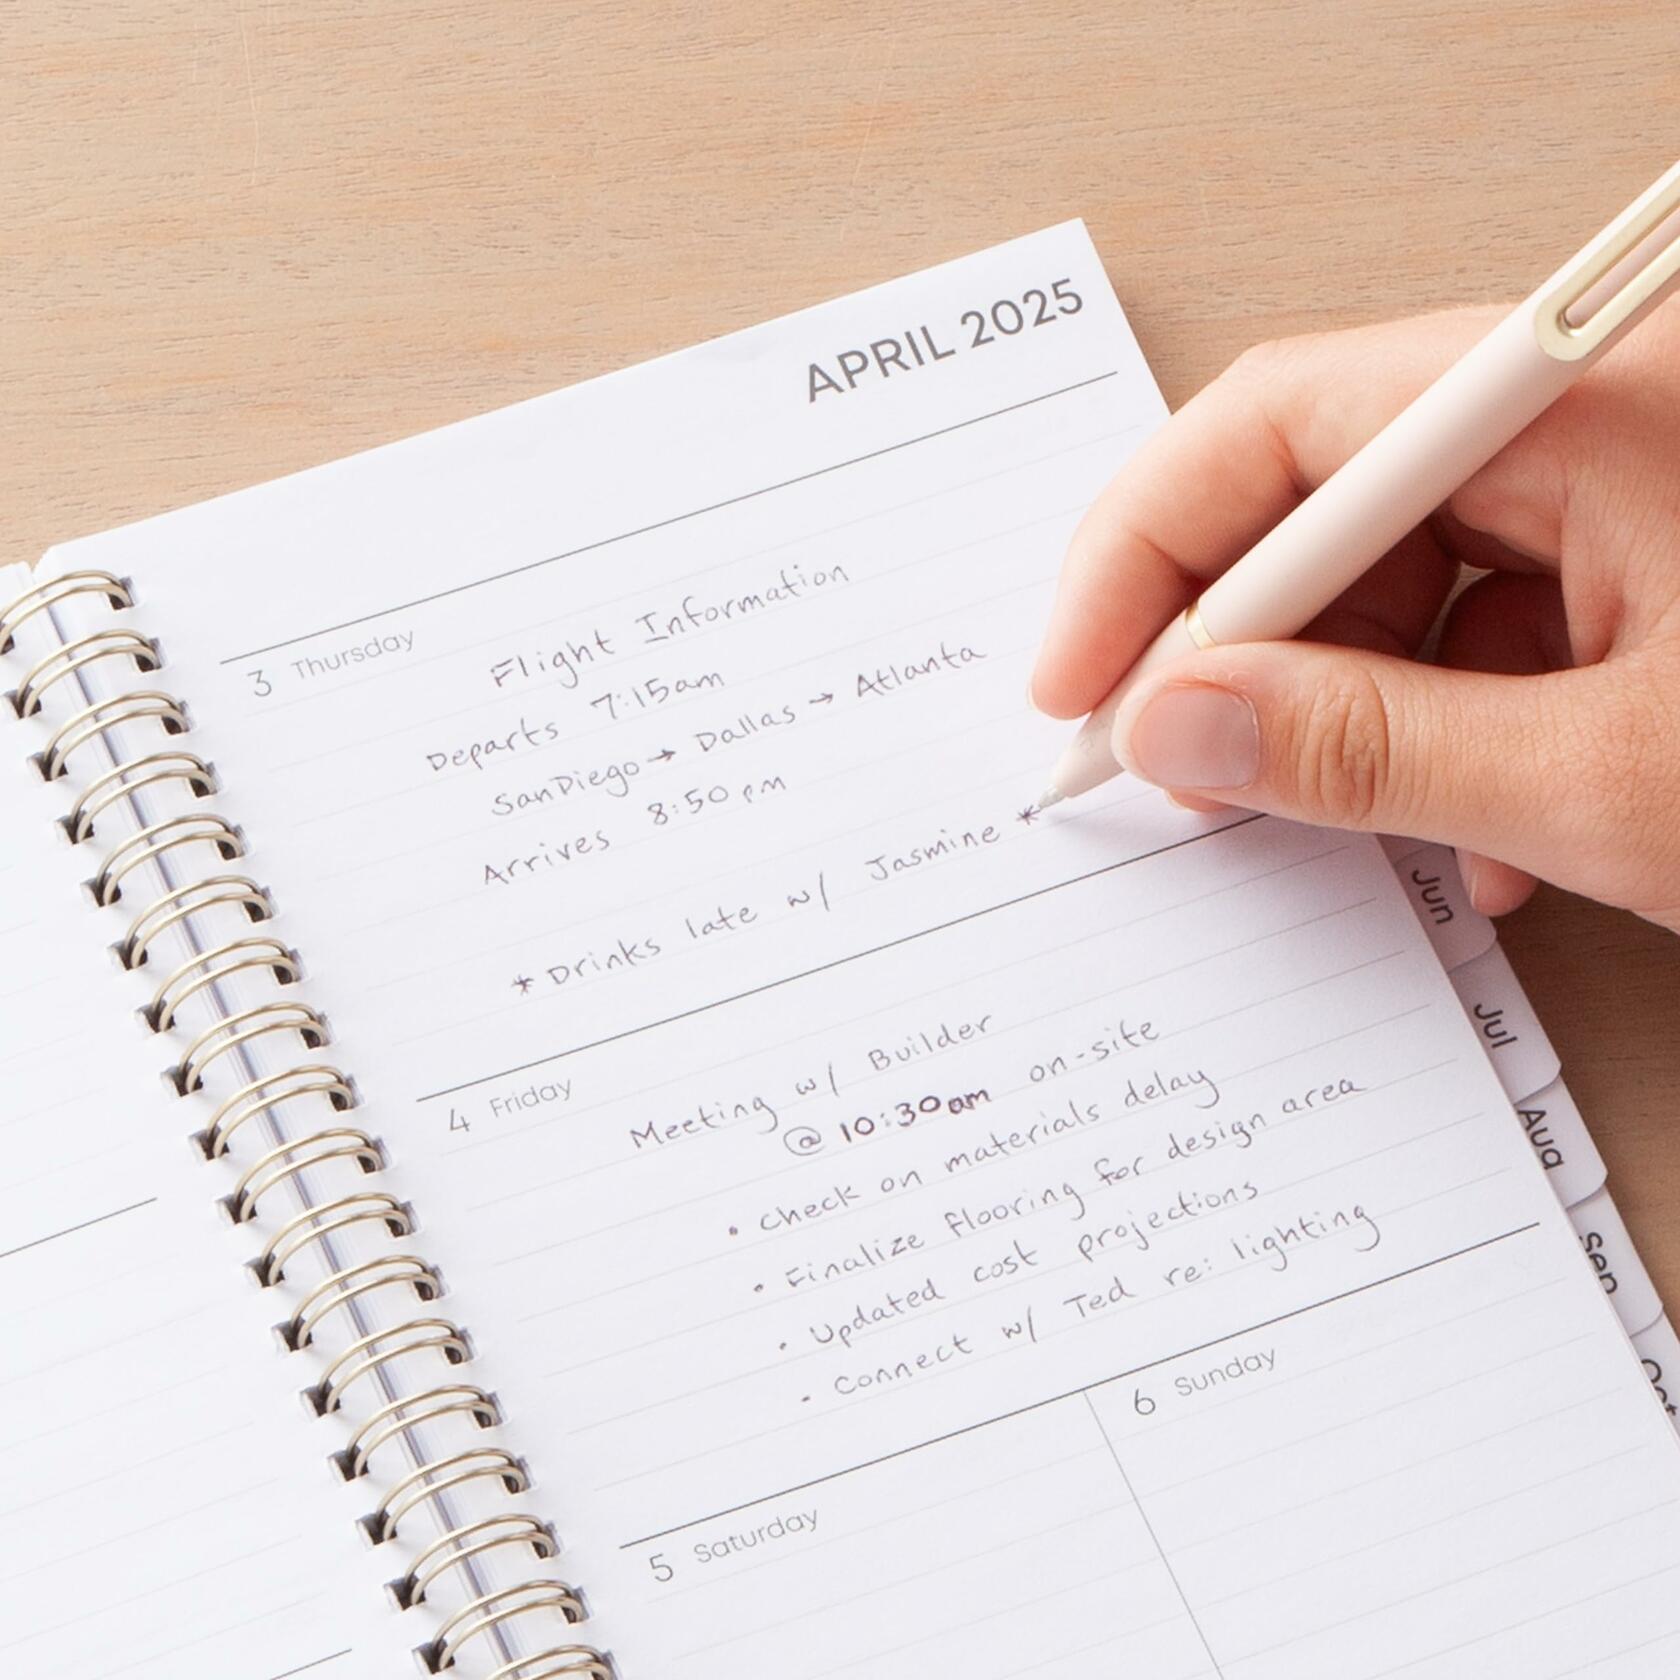 APRIL 2025
3 Thursday
Flight Information
Departs 7:15am
San Diego → Dallas → Atlanta
Arrives 8:50 pm
* Drinks late w/ Jasmine *
4 Friday
Meeting w/ Builder
@ 10:30am on-site
• Check on materials delay
• Finalize flooring for design area
• Updated cost projections
• Connect w/ Ted re: lighting
5 Saturday
6 Sunday
Jun
Jul
Aug
Sep
Oct